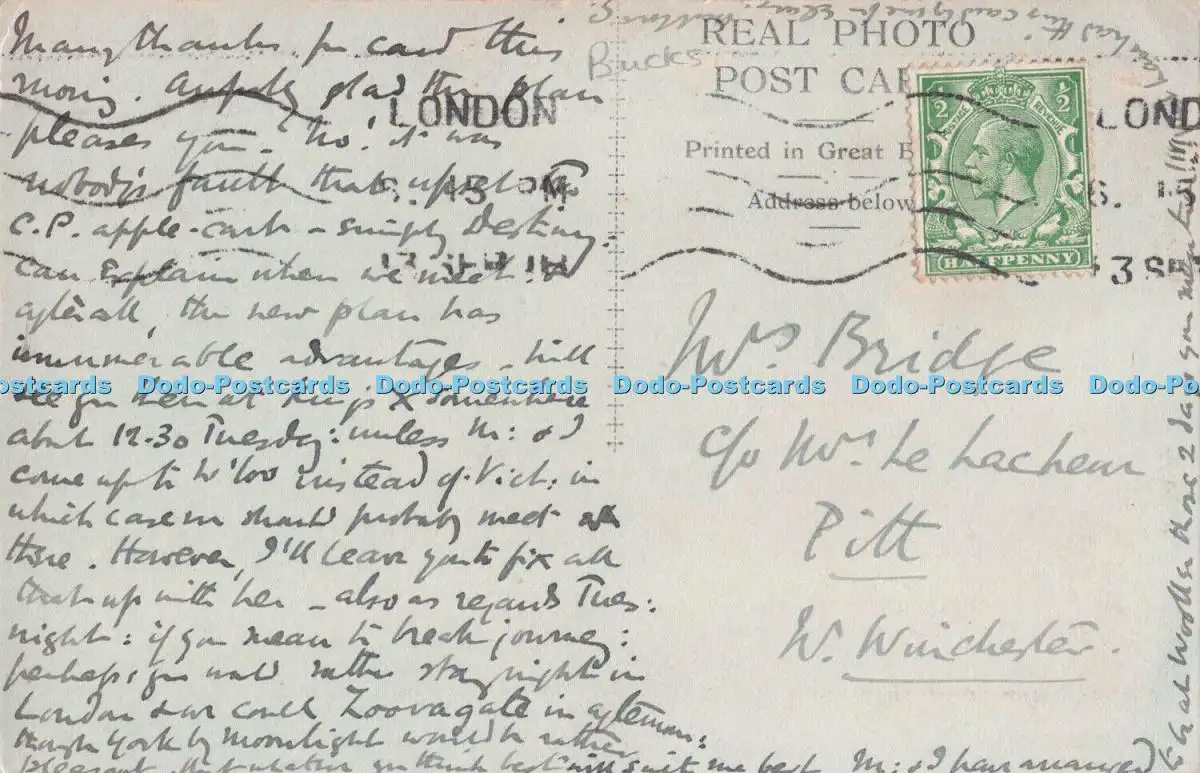 Many thanks for card this
morning. Awfully glad the plan
pleases you - 'No'. it was
nobody's fault that upset the
C.P. apple-cart - simply Destiny.
can explain when we meet: &
after all, the new plan has
innumerable advantages. Will
see you then at King's X somewhere
about 12.30 Tuesday: unless M: & I
come up to W'loo instead of Vict: in
which case we should probably meet
there. However, I'll leave you to fix all
that up with her - also as regards Tues:
night: if you mean to break journey:
perhaps you would rather stay night in
London & we could Zoovagate in afternoon:
though York by moonlight would be rather
pleasant. But whatever you think best will suit me best. M: & I have arranged
to be at Woolker those 2 days you mention
Bucks
REAL PHOTO
POST CAR
Printed in Great B
Address below
LONDON
.15 PM
13 SEP
LOND
6.15
13 SEP
1/2 1/2
POSTAGE REVENUE
HALFPENNY
Mrs Bridge
c/o Mrs. Le Lacheur
Pitt
Nr. Winchester.
Dodo-Postcards Dodo-Postcards Dodo-Postcards Dodo-Postcards Dodo-Postcards